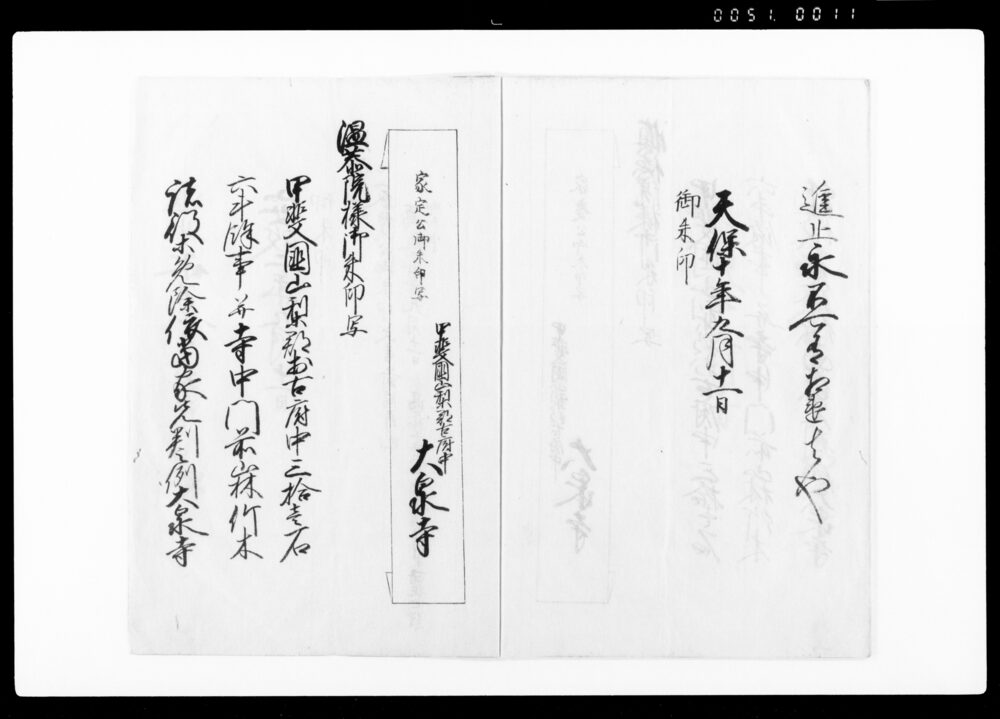 0051. 0011
進止永不可有相違者也
天保十年九月十一日
御朱印
家定公御朱印写
甲斐国山梨郡古府中
大泉寺
温恭院様御朱印写
甲斐国山梨郡於古府中三拾壱石
六斗餘事并寺中門前山林竹木
諸役等免除依当家先判之例大泉寺